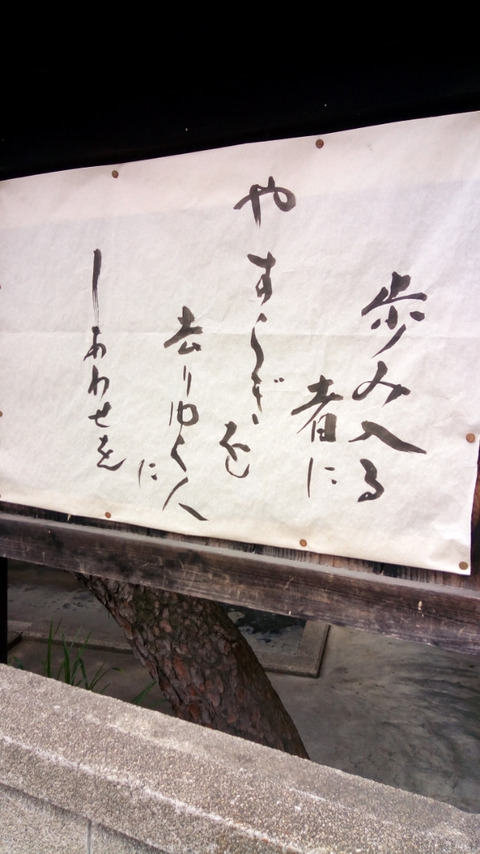 歩み入る
者に
やすらぎを
去りゆく人
に
しあわせを